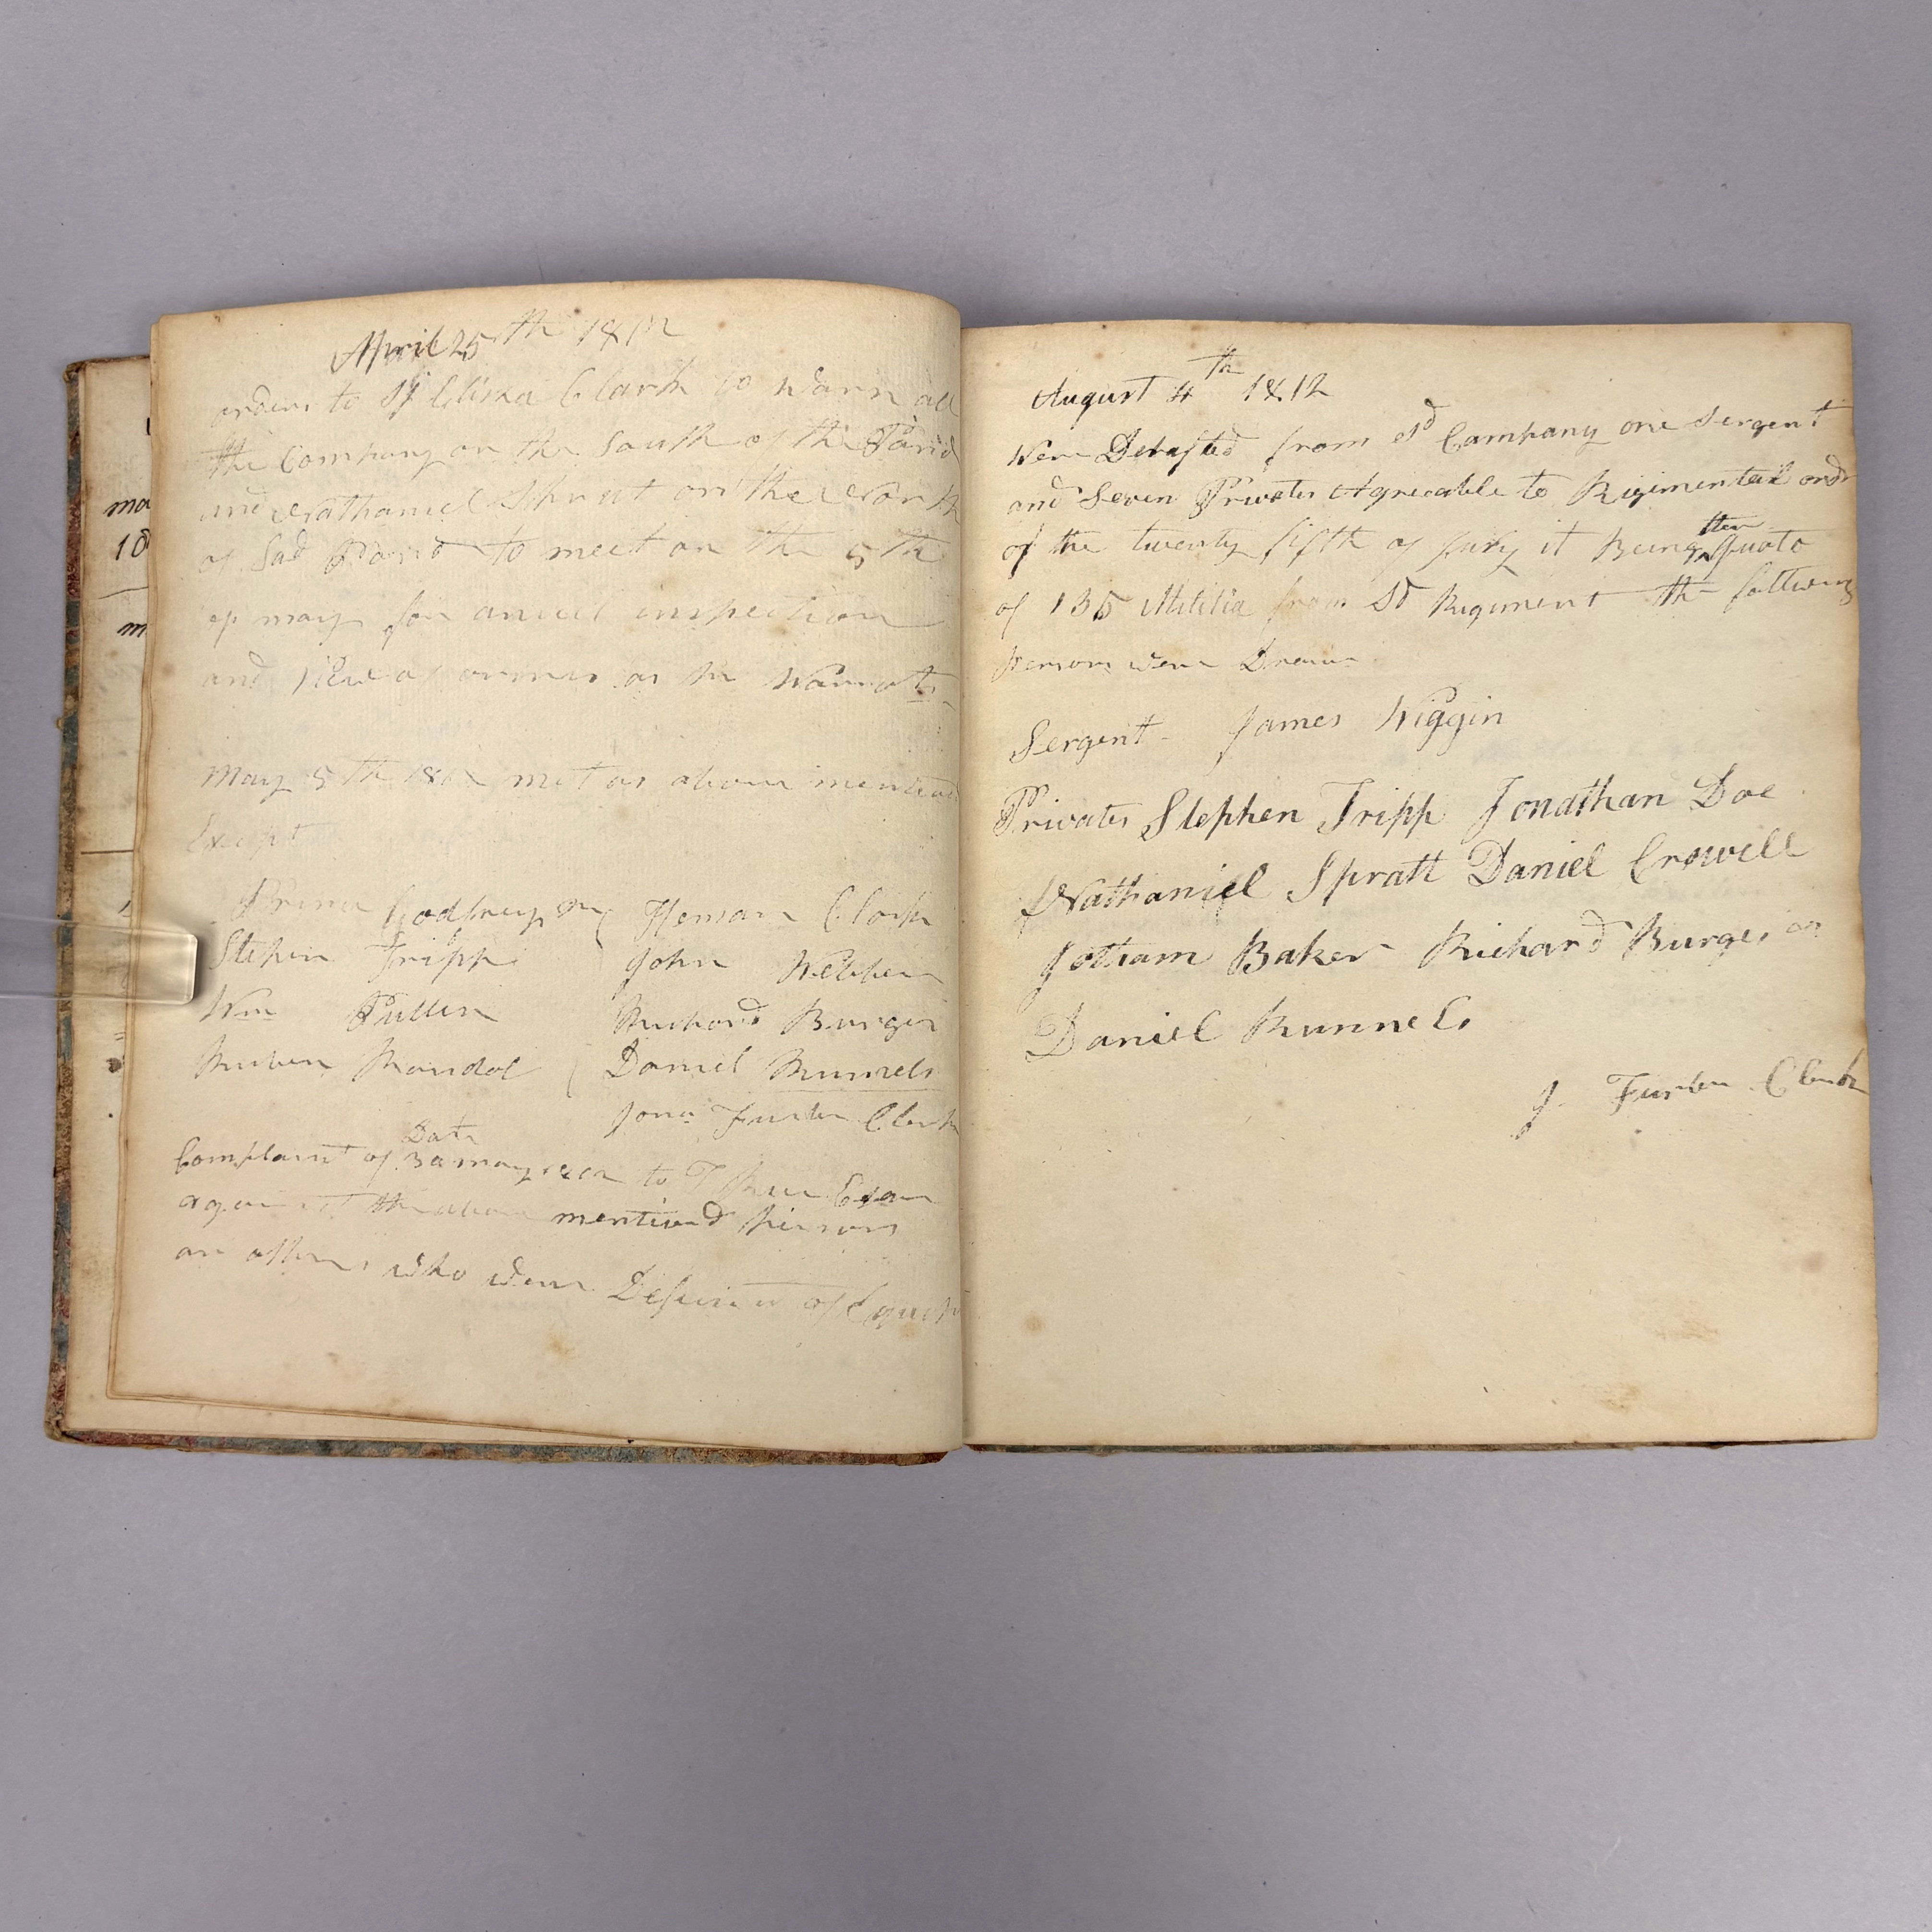 ma
10
m
April 25th 1812
orders to Clark to warn all
the Company on the South of the Pond
and Nathaniel Spratt on the North
of Sad Pond to meet on the 5th
of may for anuel inspection
and view of armes as the Warrants
May 5th 1812 met as above mentiond
Except
Prince Godfrey Heman Clark
Stephen Tripp John Webber
Wm Pullen Richard Burges
Ruben Randol Daniel Runnels
Jona Furber Clerk
Date
Complaint of 30 may 1812 to Esqr
against the above mentiond persons
an others who were of Equip
August 4th 1812
Were Detafted from sd Company one Sergent
and Seven Privates Agreeable to Rigimentail ordr
of the twenty fifth of July it Being ther Quoto
of 135 Militia from Sd Regiment the follwing
persons were Drawn
Sergent - James Wiggin
Privates Stephen Tripp Jonathan Doe
Nathaniel Spratt Daniel Crowell
Jotham Baker Richard Burges an
Daniel Runnels
J. Furber Clerk